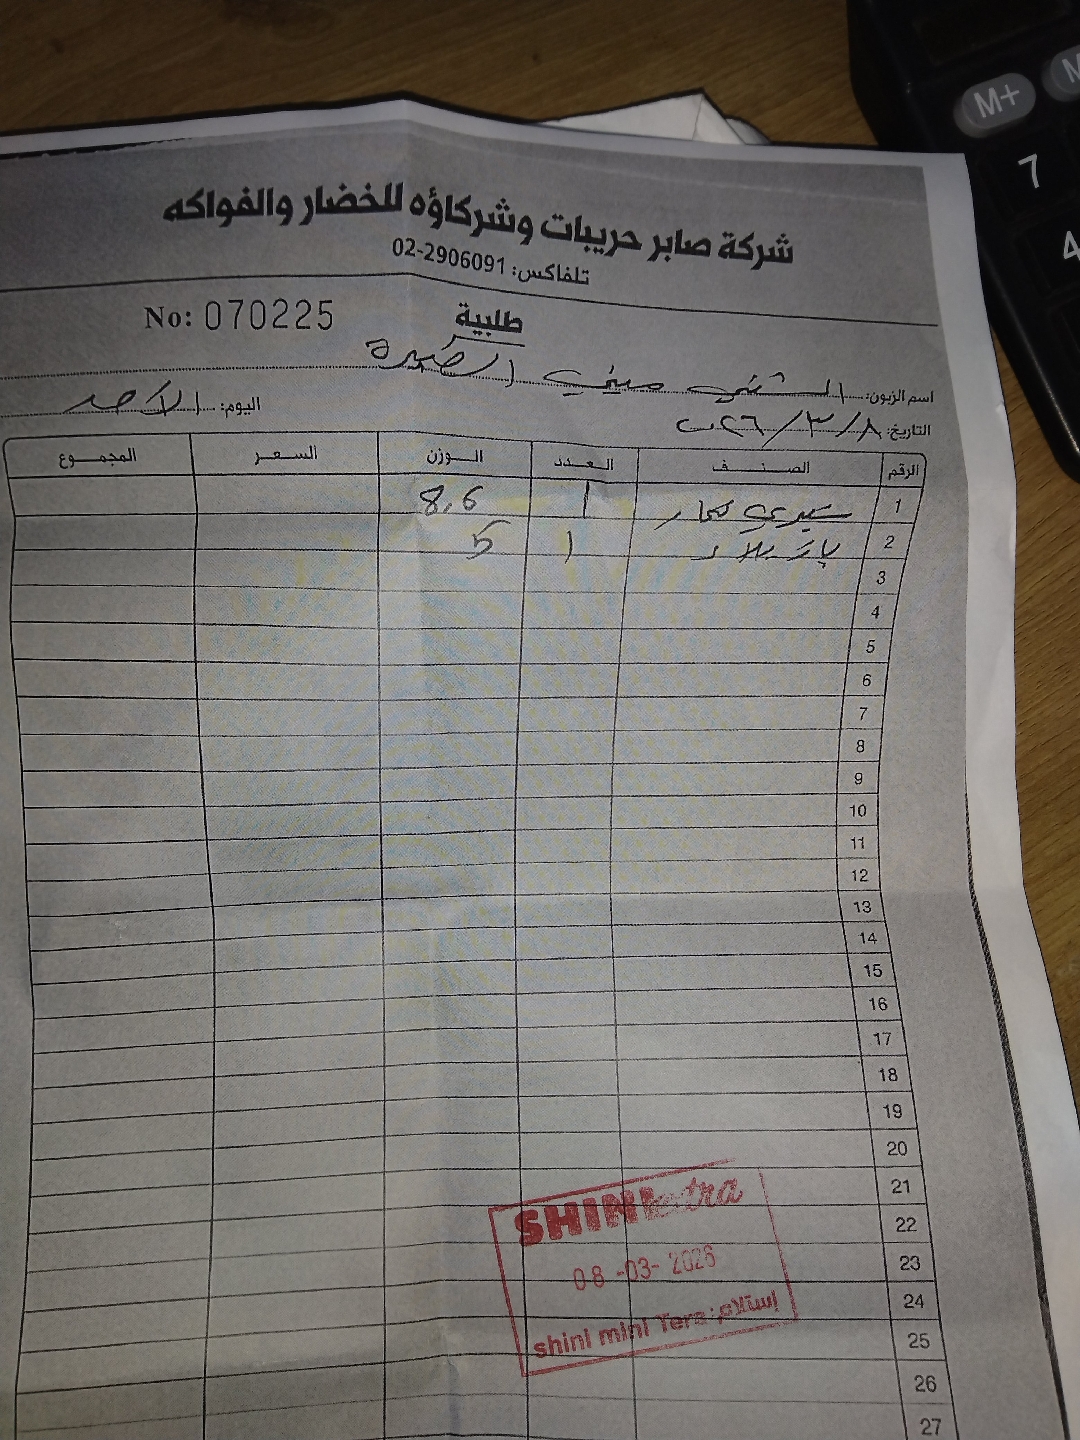 شركة صابر حريبات وشركاؤه للخضار والفواكه
تلفاكس: 02-2906091
No: 070225
طلبية
اسم الزبون: الشني ميني الطيرة
التاريخ: ٢٦/٣/٨
اليوم: الأحد
الرقم الصنف العدد الوزن السعر المجموع
1 شيري 1 8,6
2 ١ 5
3
4
5
6
7
8
9
10
11
12
13
14
15
16
17
18
19
20
21
22
23
24
25
26
27
SHINI extra
08-03-2026
shini mini Tera :إستلام
M+
M
7
4